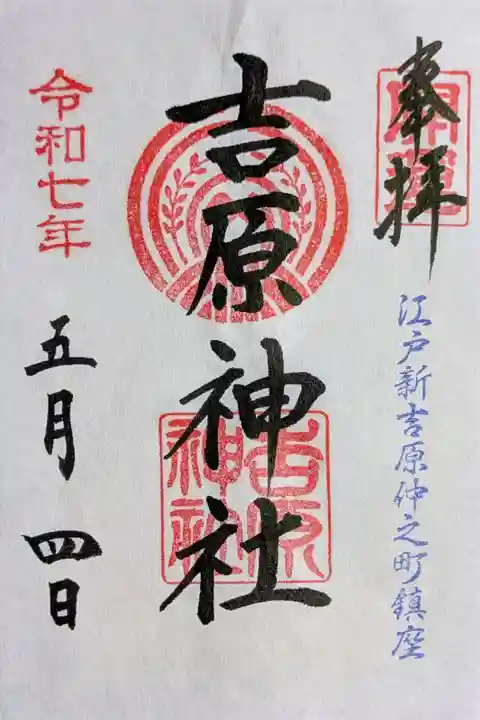 奉拝
開運
江戸新吉原仲之町鎮座
吉原神社
吉原神社
令和七年
五月 四日